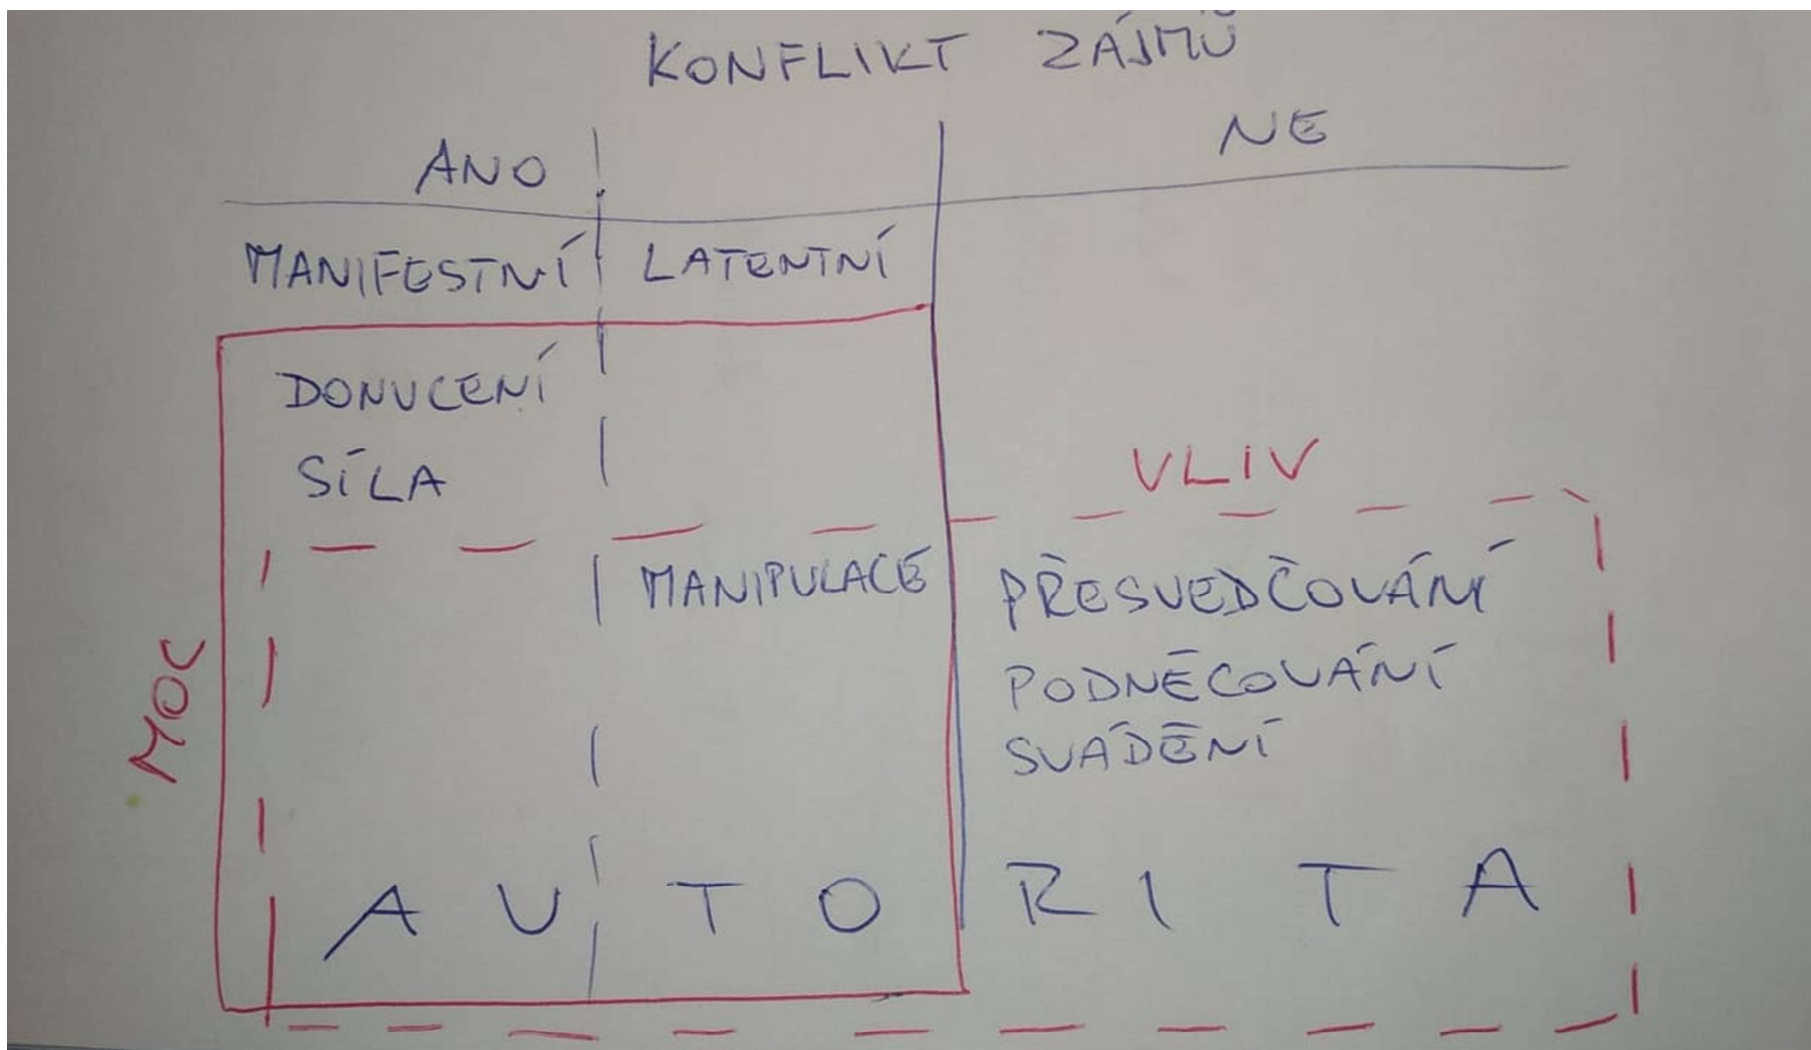 KONFLIKT ZÁJMŮ
ANO NE
MANIFESTNÍ LATENTNÍ
DONUCENÍ
SÍLA
VLIV
MANIPULACE PŘESVEDČOVÁNÍ
PODNĚCOVÁNÍ
SVÁDĚNÍ
MOC
AUTORITA